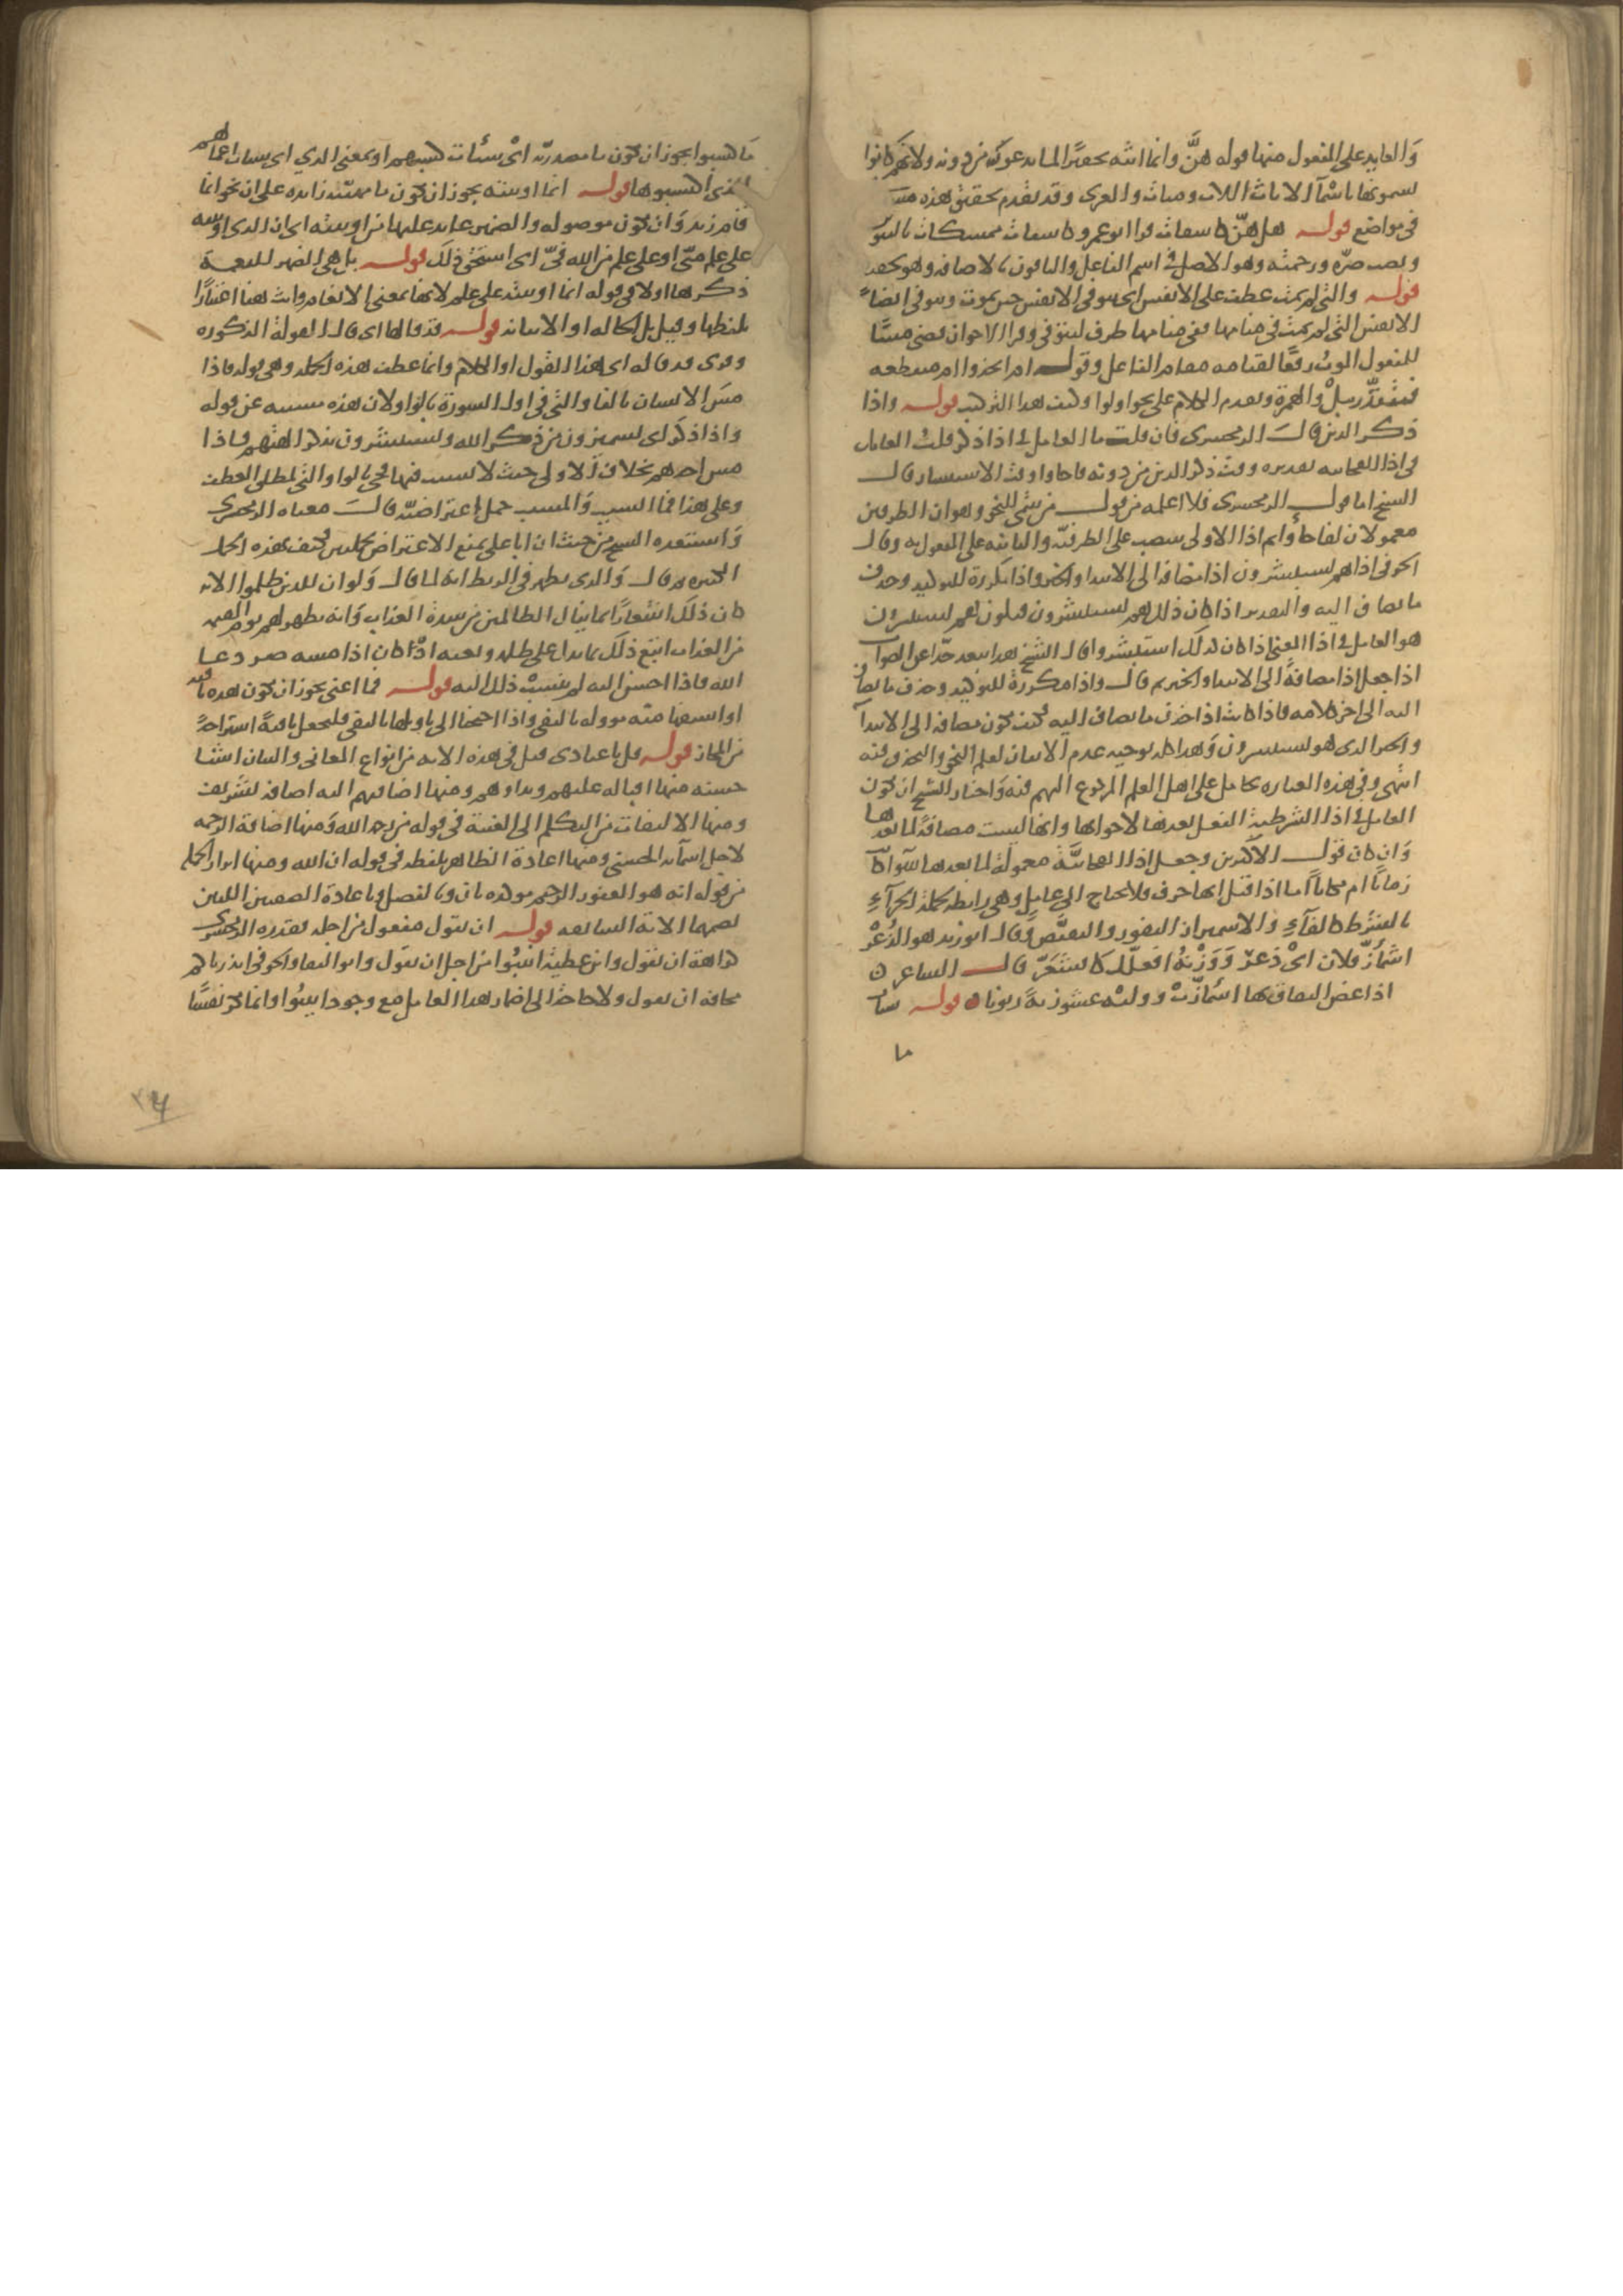 والعايد على المفعول منها قوله هنَّ وانما انثه تحقيرًا لما يدعون من دونه ولانهم كانوا
يسمونها باسمآ الاناث اللات ومناة والعزى وقد تقدم تحقيق هذه
في مواضع قوله هل هنّ كاشفات قرا ابو عمرو كاشفات ممسكات بالتنوين
ونصب ضرّه ورحمته وهو الاصل في اسم الفاعل والباقون بالاضافه وهو تخفيف
قوله والتي لم تمت عطف على الانفس اى يتوفى الانفس حين يموت ويتوفى ايضًا
الانفس التي لم تمت في منامها ففي منامها ظرف ليتوفى وقرا الاخوان قضى مبنيًّا
للمفعول الموت رفعًا لقيامه مقام الفاعل وقوله ام اتخذوا ام منقطعه
فتقدّر ببلْ والهمزة وتقدم الكلام على نحو اولوا وكيف هذا التركيب قوله واذا
ذكر الذين قال الزمخشرى فان قلت ما العامل في اذا ذكر قلت العامل
في اذا المفاجاه تقديره وقت ذكر الذين من دونه فاجاوا وقت الاستبشار قال
الشيخ اما قول الزمخشرى فلا اعلمه من قول من ينتمي للنحو وهو ان الظرفين
معمولان لفاجأوا ثم اذا الاولى ينتصب على الظرفيّه والثانيه على المفعول به وقال
الحوفى اذا هم يستبشرون اذا مضافه الى الابتدا والخبر واذا مكررة للتوكيد وحذف
ما يضاف اليه والتقدير اذا كان ذلك هم يستبشرون فيكون هم يستبشرون
هو العامل في اذا المعنى اذا كان ذلك استبشروا قال الشيخ هذا يبعد جدًا عن الصواب
اذا جعل اذا مضافةً الى الابتدا والخبر ثم قال واذا مكررةً للتوكيد وحذف ما يضاف
اليه الى اخر كلامه فاذا كانت اذا حذف ما يضاف اليه فكيف تكون مضافه الى الابتدآ
والخبر الذى هو يستبشرون وهذا كله يوجبه عدم الاتقان لعلم النحو والتحذق فيه
انتهى وفي هذه العباره تحامل على اهل العلم المرجوع اليهم فيه واختار الشيخ ان يكون
العامل في اذا الشرطية الفعل بعدها لا جوابها وانها ليست مضافةً لما بعدها
وان كان قول الاكثرين وجعل اذا الفجائيَّةُ معمولةً لما بعدها سَوآ كان
زمانًا ام مكانًا اما اذا قيل انها حرف فلا تحتاج الى عامل وهى رابطه لجملة الجزآءِ
بالشرط كالفآءِ والاشميزاز النفور والتقبّض وقال ابو زيد هو الذُعْرُ
اشمأزّ فلان اىْ ذَعرَ وَوَزْنهُ افعلّل كاقشعَرّ قال الشاعر
اذا عض الثقاف بها اشمأزّتْ وولته عشوزنةً زبونا قوله سيآت
ما
ما كسبوا يجوز ان تكون ما مصدريّه اىْ سيئات كسبهم او بمعنى الذي اى سيات اعمالهم
التى اكتسبوها قوله انما اوتيته يجوز ان تكون ما مهيّئه زايده على ان نحو انما
قام زيد وان تكون موصوله والضمير عايد عليها من اوتيته اى ان الذى اوتيته
على علم منّى او على علم من الله فيّ اى استحق ذلك قوله بل هى الضمير للنعمة
ذكرها اولا في قوله انما اوتيته على علم لانها بمعنى الانعام وانث هنا اعتبارًا
بلفظها وقيل بل الحاله او الاتيانه قوله قد قالها اى قال القولة المذكوره
وقرى قد قاله اى هذا القول او الكلام وانما عطف هذه الجمله وهي قوله فاذا
مسّ الانسان بالفا والتى في اول السورة بالواو لان هذه مسببه عن قوله
واذا ذكر اى يشميزون من ذكر الله ويستبشرون بذكر الهتهم فاذا
مس احدهم بخلاف الاولى حيث لا تسبب فيها فجى بالواو التى لمطلق العطف
وعلى هذا فما السبب والمسبب جمل اعتراضيّه قال معناه الزمخشرى
واستبعده الشيخ من حيث ان ابا على يمنع الاعتراض بجملتين فكيف بهذه الجمل
الكثيره ثم قال والذى يظهر فى الربط انه لما قال ولو ان للذين ظلموا الايه
كان ذلك اشعارًا بما ينال الظالمين من شدة العذاب وانه يظهر لهم يوم القيمه
من العذاب اتبع ذلك بما يدل على ظلمه وبغيه اذْ كان اذا مسه ضر دعا
الله فاذا احسن اليه لم ينسبْ ذلك اليه قوله فما اغنى يجوز ان تكون هذه نافيه
او استفهاميّه مووله بالنفى واذا احتجنا الى تاويلها بالنفى فلنجعل نافيةً استراحةً
من المجاز قوله قل يا عبادى قيل فى هذه الايه من انواع المعانى والبيان اشيا
حسنه منها اقباله عليهم ونداوهم ومنها اضافتهم اليه اضافه تشريف
ومنها الالتفات من التكلم الى الغيبة فى قوله من رحمة الله ومنها اضافة الرحمه
لاجل اسمآئه الحسنى ومنها اعادة الظاهر بلفظه فى قوله ان الله ومنها ابراز الجمله
من قوله انه هو الغفور الرحيم موكده بان وبالفصل وباعادة الصفتين اللتين
تضمنها الاية السابقه قوله ان تقول مفعول من اجله فقدره الزمخشرى
كراهة ان تقول وابن عطية انيبُوا من اجل ان تقول وابو البقا والحوفى انذرناكم
مخافه ان تقول ولا حاجة الى اضمار هذا العامل مع وجود انيبُوا وانما نكر نفسًا